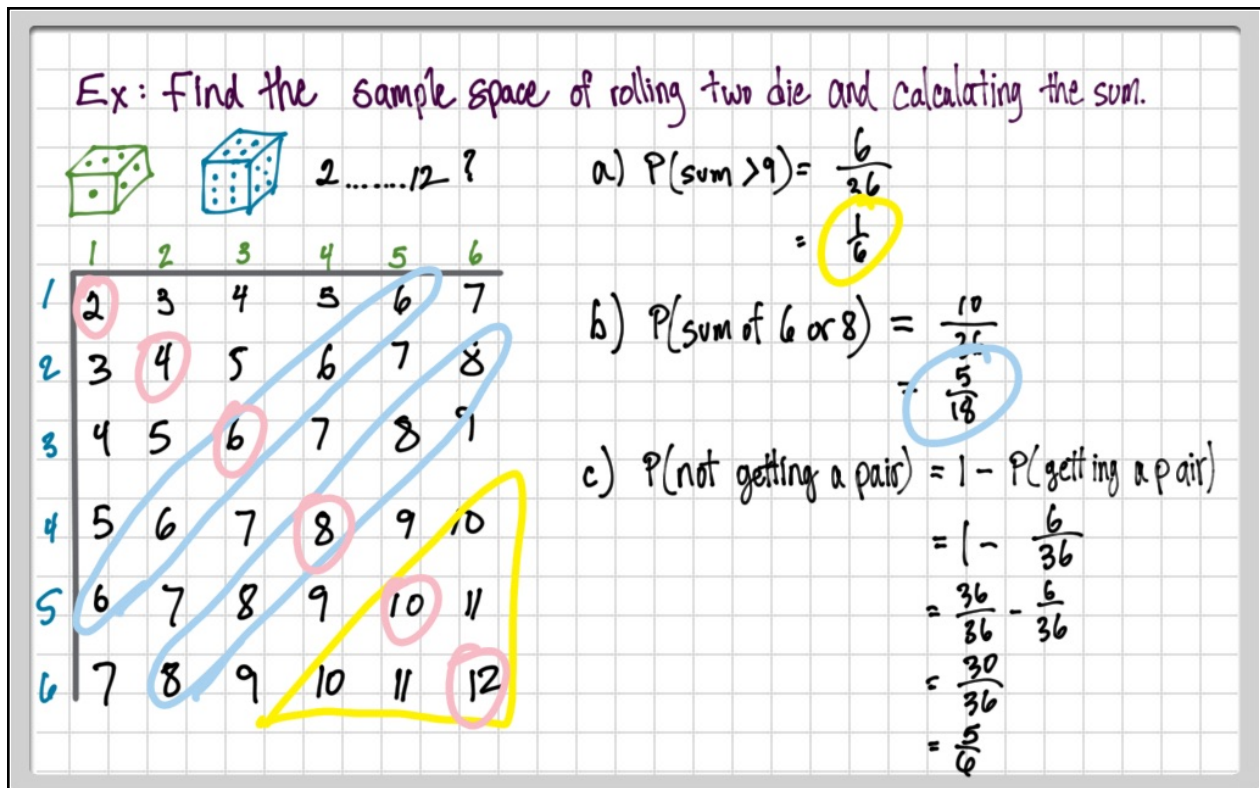 Ex: Find the sample space of rolling two die and calculating the sum.
2.......12 ?
1 2 3 4 5 6
1 2 3 4 5 6 7
2 3 4 5 6 7 8
3 4 5 6 7 8 9
4 5 6 7 8 9 10
5 6 7 8 9 10 11
6 7 8 9 10 11 12
a) P(sum >9)= 6/36
= 1/6
b) P(sum of 6 or 8) = 10/36
= 5/18
c) P(not getting a pair) = 1 - P(getting a pair)
= 1 - 6/36
= 36/36 - 6/36
= 30/36
= 5/6